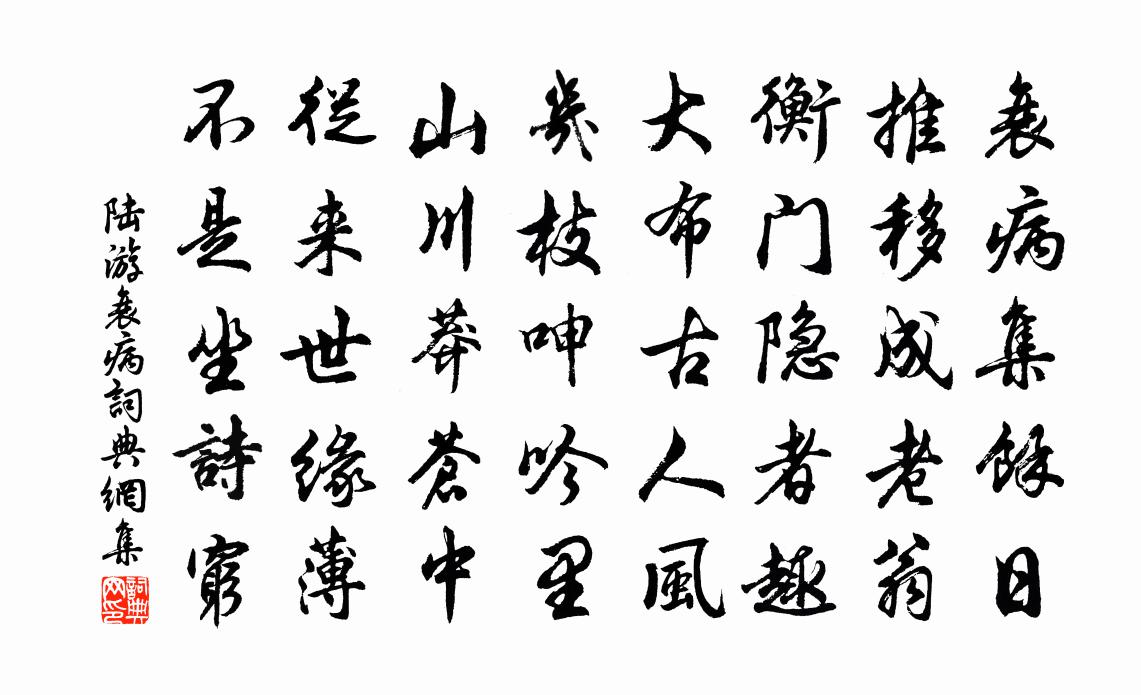 衰病集餘日
推移成老翁
衡门隐者趣
大布古人風
幾枝呻吟里
山川莽蒼中
従来世缘薄
不是坐詩窮
陆游衰病詞典網集
詞典网印